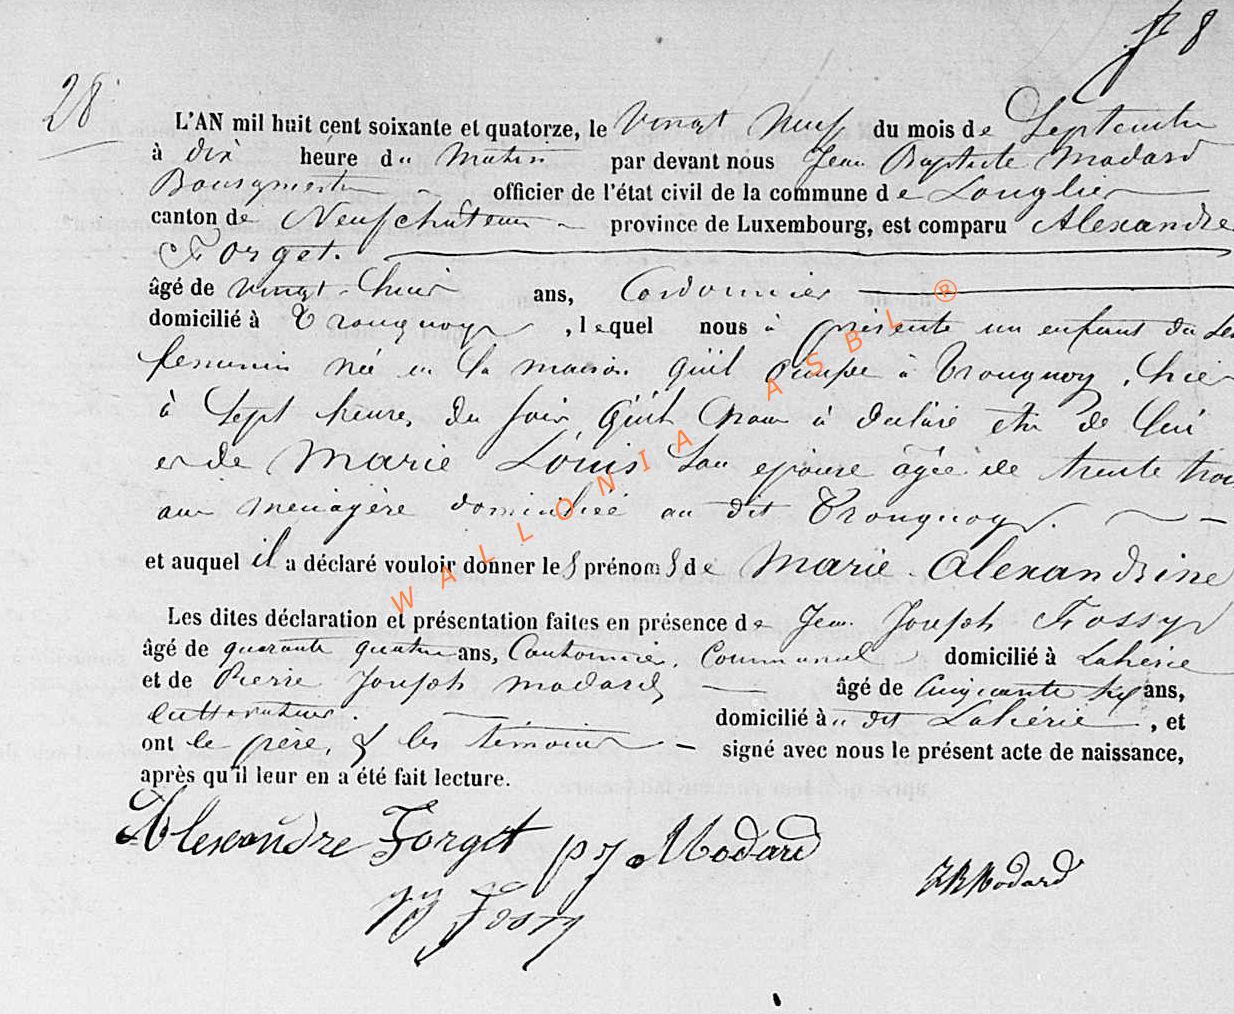 f° 8
28
L'AN mil huit cent soixante et quatorze, le Vingt Neuf du mois de Septembre
à dix heure du Matin par devant nous Jean Baptiste Modard
Bourgmestre officier de l'état civil de la commune de Longlier
canton de Neufchâteau province de Luxembourg, est comparu Alexandre
Forget.
âgé de vingt-huit ans, Cordonnier
domicilié à Tronquoy, lequel nous à présenté un enfant du Sexe
femenin née en la maison qu'il occupe à Tronquoy, hier
à Sept heures du soir, Qu'il Nous à declaré etre de Lui
et de Marie Louis Son epouse âgée de trente trois
ans menagère domiciliée au dit Tronquoy.
et auquel il a déclaré vouloir donner les prénoms de Marie Alexandrine
Les dites déclaration et présentation faites en présence de Jean Joseph Fossy
âgé de quarante quatre ans, Cantonnier Communal domicilié à Lahérie
et de Pierre Joseph Modard, âgé de Cinquante six ans,
Cultivateur. domicilié à au dit Lahérie, et
ont le père, & les témoins signé avec nous le présent acte de naissance,
après qu'il leur en a été fait lecture.
Alexandre Forget pj Modard
JB Modard
JJ Fossy
WALLONIA ASBL ®